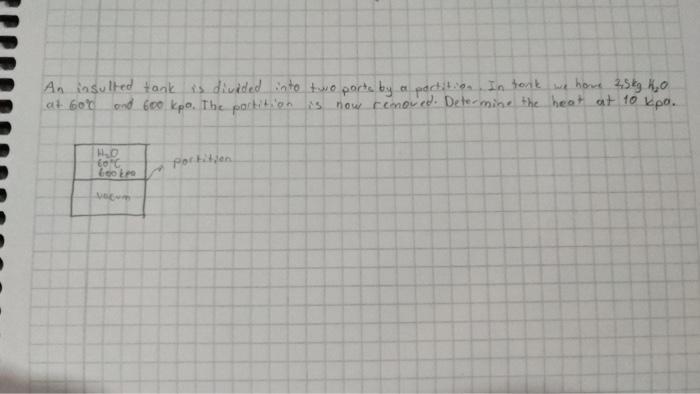 An insulted tank is divided into two parts by a partition. In tank we have 2,5kg H₂O
at 60°C and 600 kpa. The partition is now removed. Determine the heat at 10 kpa.
H₂O
60°C
600 kpa
partition
vacum